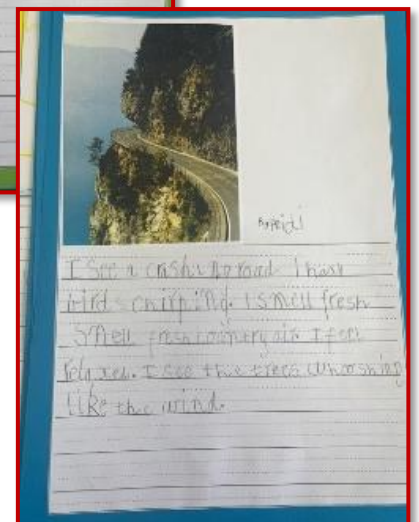 I see a road. I hear
birds chirping. I smell fresh
smell fresh country air. I feel
relaxed. I see the trees whooshing
like the wind.